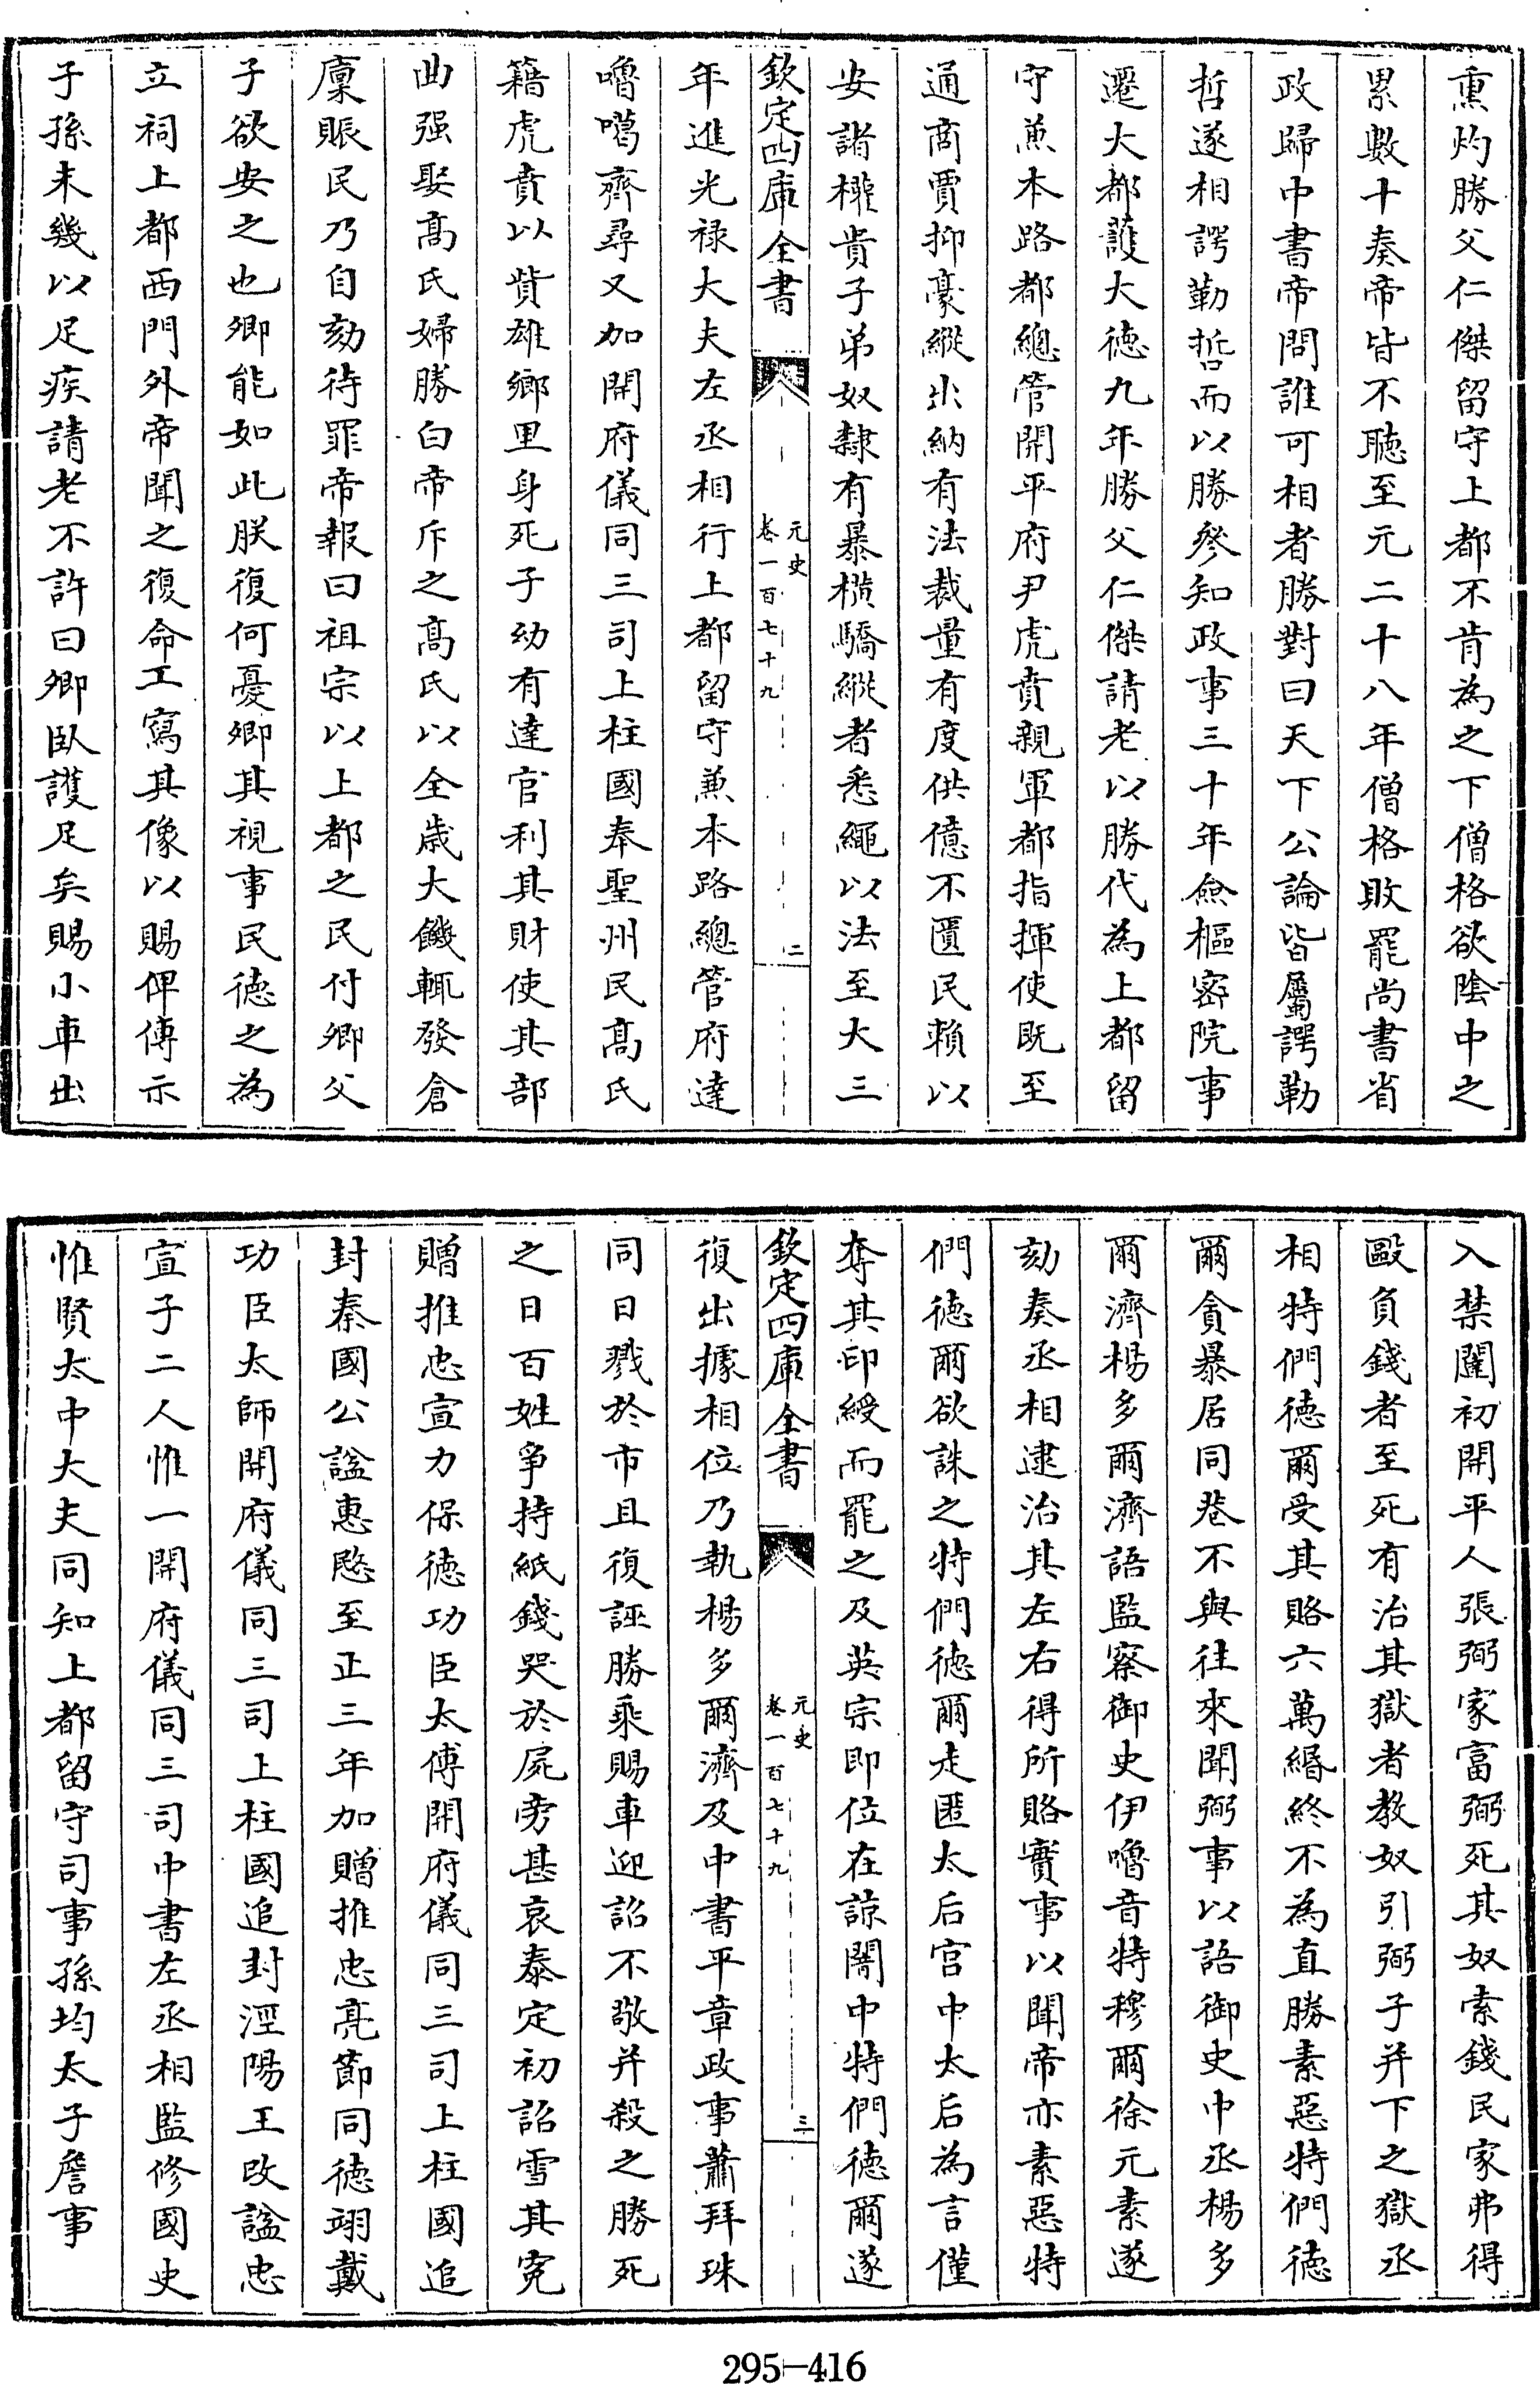 熏灼勝父仁傑留守上都不肯為之下僧格欲陰中之
累數十奏帝皆不聽至元二十八年僧格敗罷尚書省
政歸中書帝問誰可相者勝對曰天下公論皆屬諤勒
哲遂相諤勒哲而以勝參知政事三十年僉樞密院事
遷大都護大德九年勝父仁傑請老以勝代為上都留
守兼本路都總管開平府尹虎賁親軍都指揮使既至
通商賈抑豪縱出納有法裁量有度供億不匱民賴以
安諸權貴子弟奴隸有暴橫驕縱者悉繩以法至大三
欽定四庫全書
元史
卷一百七十九
二
年進光祿大夫左丞相行上都留守兼本路總管府達
嚕噶齊尋又加開府儀同三司上柱國奉聖州民高氏
籍虎賁以貲雄鄉里身死子幼有達官利其財使其部
曲强娶高氏婦勝白帝斥之高氏以全歲大饑輒發倉
廩賑民乃自劾待罪帝報曰祖宗以上都之民付卿父
子欲安之也卿能如此朕復何憂卿其視事民德之為
立祠上都西門外帝聞之復命工寫其像以賜俾傳示
子孫未幾以足疾請老不許曰卿臥護足矣賜小車出
入禁闥初開平人張弼家富弼死其奴索錢民家弗得
毆負錢者至死有治其獄者教奴引弼子并下之獄丞
相特們德爾受其賂六萬緡終不為直勝素惡特們德
爾貪暴居同巷不與往來聞弼事以語御史中丞楊多
爾濟楊多爾濟語監察御史伊嚕音特穆爾徐元素遂
劾奏丞相逮治其左右得所賂實事以聞帝亦素惡特
們德爾欲誅之特們德爾走匿太后宮中太后為言僅
奪其印綬而罷之及英宗即位在諒闇中特們德爾遂
欽定四庫全書
元史
卷一百七十九
三
復出據相位乃執楊多爾濟及中書平章政事蕭拜珠
同日戮於市且復誣勝乘賜車迎詔不敬并殺之勝死
之日百姓爭持紙錢哭於屍旁甚哀泰定初詔雪其寃
贈推忠宣力保德功臣太傅開府儀同三司上柱國追
封秦國公諡惠愍至正三年加贈推忠亮節同德翊戴
功臣太師開府儀同三司上柱國追封涇陽王改諡忠
宣子二人惟一開府儀同三司中書左丞相監修國史
惟賢太中大夫同知上都留守司事孫均太子詹事
295-416